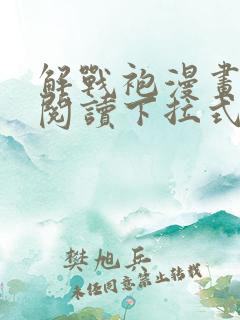 解戰袍漫畫
閱讀下拉式
樊旭兵
未经同意禁止转载